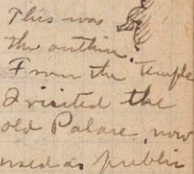 This was
the outline.
From the temple
I visited the
old Palace, now
used as public